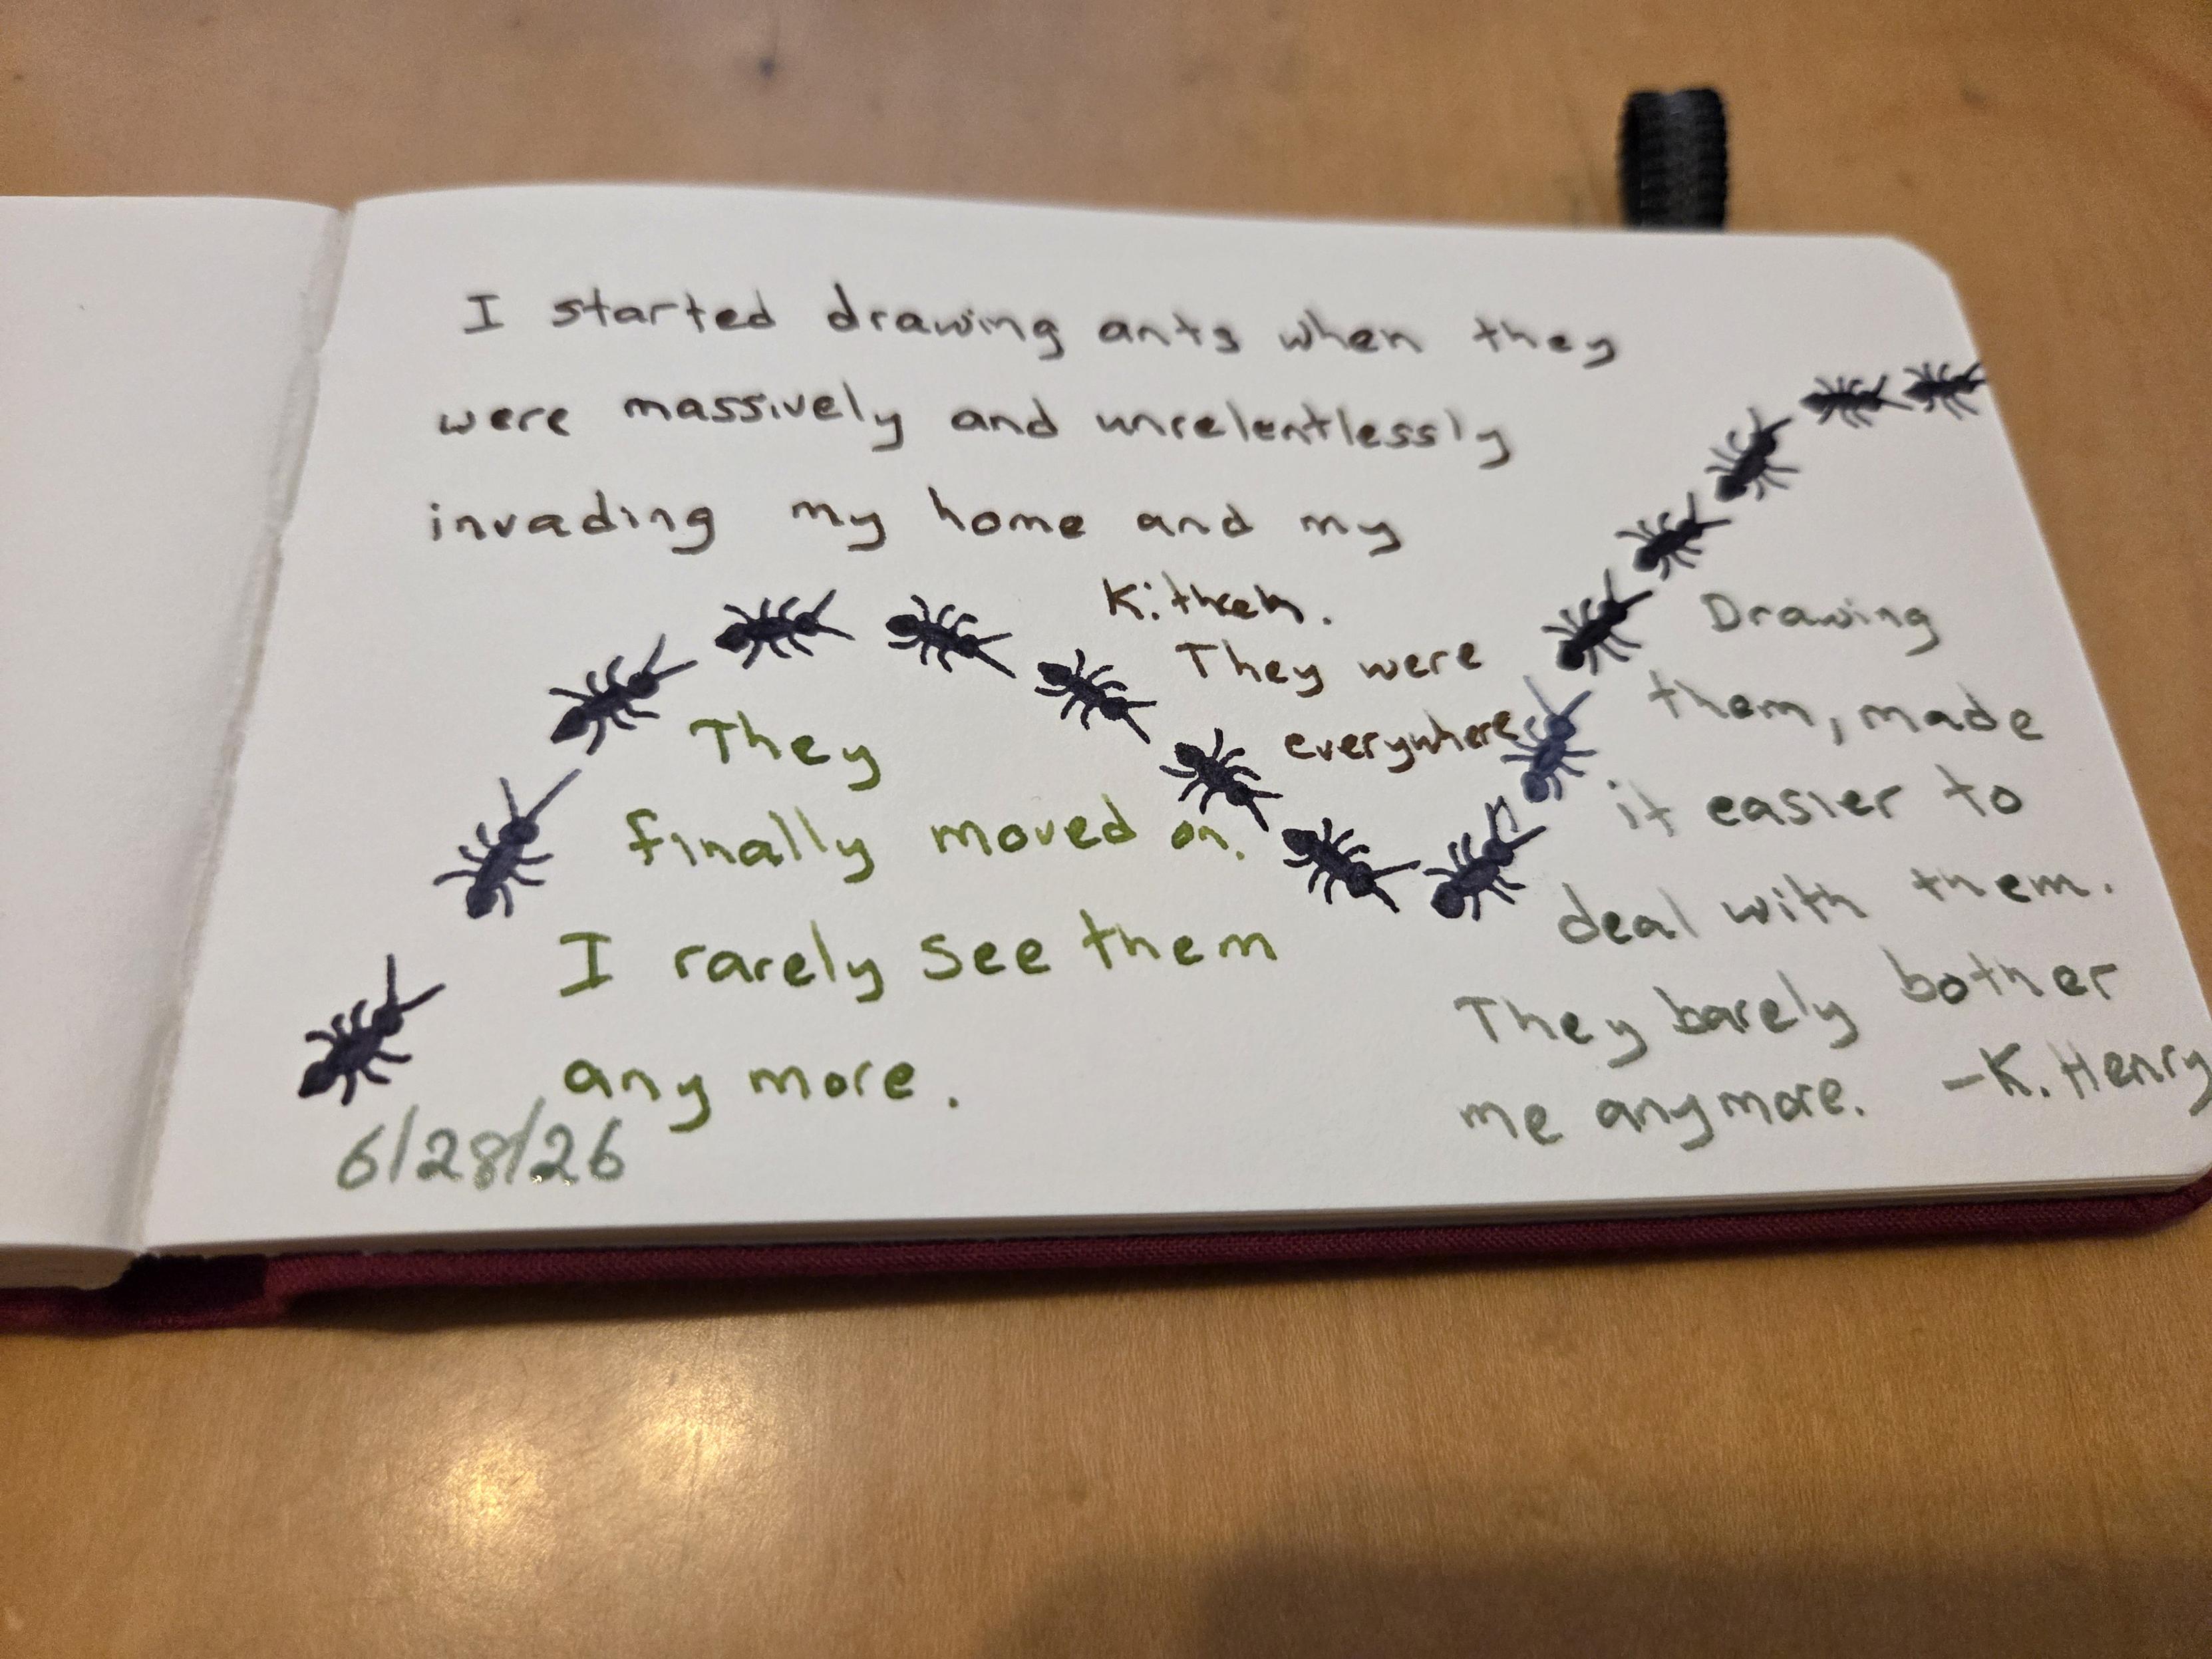 I started drawing ants when they
were massively and unrelentlessly
invading my home and my
Kithcen.
They were
everywhere
Drawing
them, made
it easier to
deal with them.
They barely bother
me anymore. -K. Henry
They
finally moved on.
I rarely see them
any more.
6/28/26